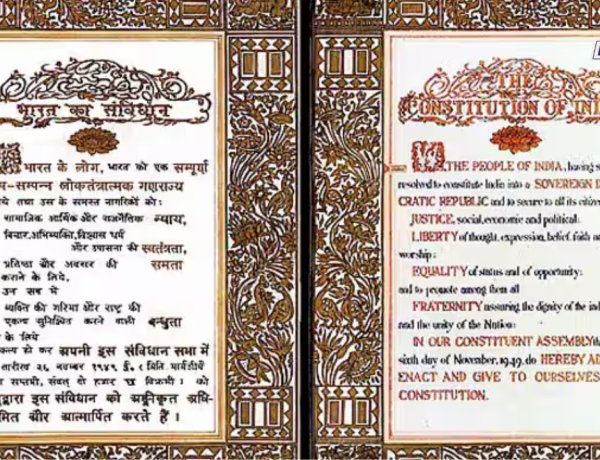 भारत का संविधान
भारत के लोग, भारत को एक सम्पूर्ण
-सम्पन्न लोकतंत्रात्मक गणराज्य
तथा उस के समस्त नागरिकों को:
सामाजिक आर्थिक और राजनैतिक न्याय,
विचार,अभिव्यक्ति,विश्वास धर्म
और उपासना की स्वतंत्रता,
प्रतिष्ठा और अवसर की समता
कराने के लिये,
उन सब में
व्यक्ति की गरिमा और राष्ट्र की
एकता सुनिश्चित करने वाली बन्धुता
के लिये
हो कर अपनी इस संविधान सभा में
तारीख २६ नवम्बर १९४९ ई. (मिति मार्गशीर्ष
सप्तमी, संवत् दो हजार छ विक्रमी) को
द्वारा इस संविधान को अङ्गीकृत अधि-
मित और आत्मार्पित करते हैं।
THE
CONSTITUTION OF IN
WE, THE PEOPLE OF INDIA, having s
resolved to constitute India into a SOVEREIGN D
CRATIC REPUBLIC and to secure to all its citize
JUSTICE, social, economic and political;
LIBERTY of thought, expression, belief, faith a
worship;
EQUALITY of status and of opportunity;
and to promote among them all
FRATERNITY assuring the dignity of the ind
and the unity of the Nation;
IN OUR CONSTITUENT ASSEMBLY th
sixth day of November, 1949, do HEREBY AD
ENACT AND GIVE TO OURSELVES
CONSTITUTION.